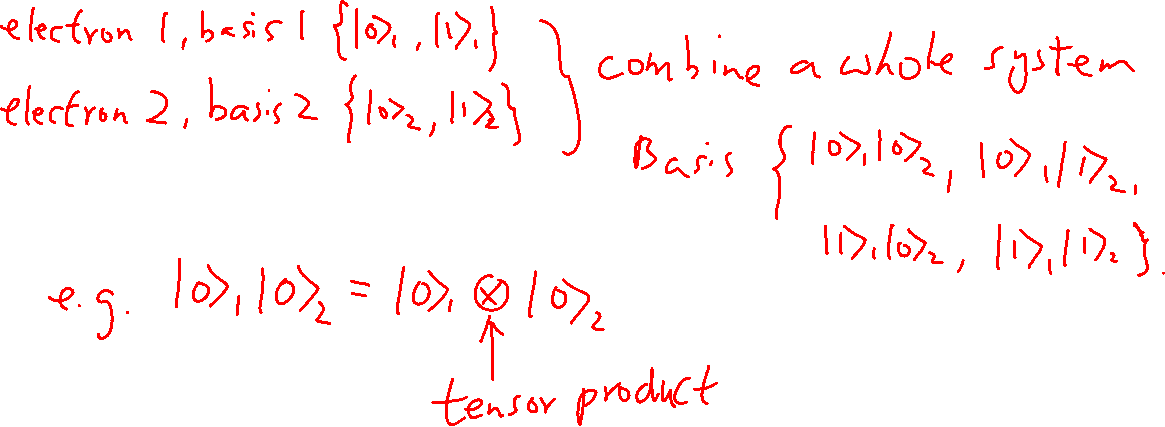 electron 1, basis 1 {|0⟩₁, |1⟩₁}
electron 2, basis 2 {|0⟩₂, |1⟩₂}
} combine a whole system
Basis {|0⟩₁|0⟩₂, |0⟩₁|1⟩₂,
|1⟩₁|0⟩₂, |1⟩₁|1⟩₂}.
e.g. |0⟩₁|0⟩₂ = |0⟩₁ ⊗ |0⟩₂
↑
tensor product